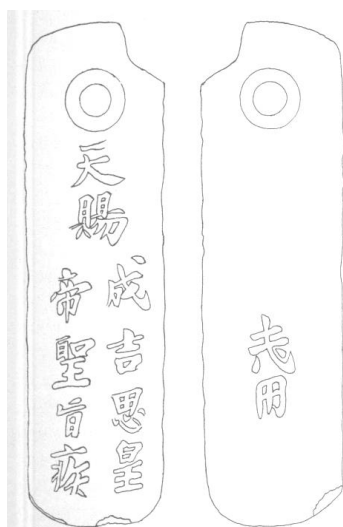 天賜
成吉思皇
帝聖旨疾